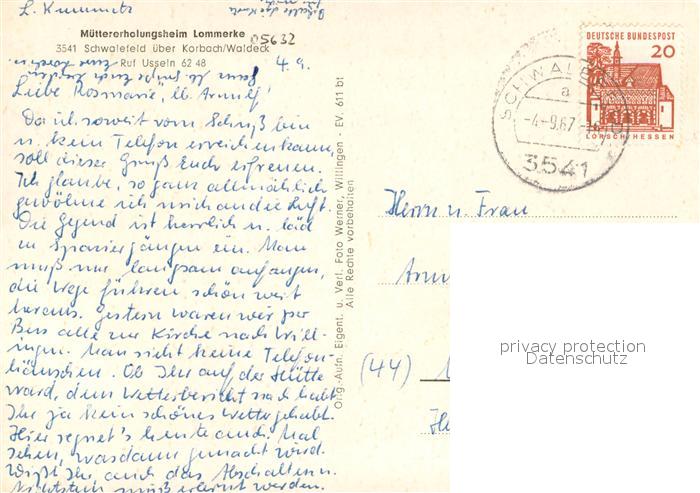 L. Kummetz
Müttererholungsheim Lommerke
05632
3541 Schwalefeld über Korbach/Waldeck
Ruf Usseln 62 48
4.9.
Liebe Rosmarie, lb. Arnulf!
Da ich soweit vom Schuß bin
u. kein Telefon erreichen kann,
soll dieser Gruß Euch erfreuen.
Ich glaube, so ganz allmählich
gewöhne ich mich an die Luft.
Die Gegend ist herrlich u. läd
zu Spaziergängen ein. Man
muß nur langsam anfangen,
die Wege führen schön weit
heraus. Gestern waren wir per
Bus alle zur Kirche nach Will-
ingen. Man sieht keine Telefon-
häuschen. Ob Ihr auf der Hütte
ward, dem Wetterbericht nach habt
Ihr ja kein schönes Wetter gehabt.
Hier regnet's heute auch. Mal
sehen, was dann gemacht wird.
Wißt Ihr, auch das Abschalten u.
Nichtstun muß erlernt werden.
Orig.-Aufn. Eigent. u. Verl. Foto Werner, Willingen · EV. 611 bt
Alle Rechte vorbehalten
DEUTSCHE BUNDESPOST
20
LORSCH/HESSEN
SCHWALEFELD
a
-4.-9.67
3541
Herrn u. Frau
(44)
privacy protection
Datenschutz